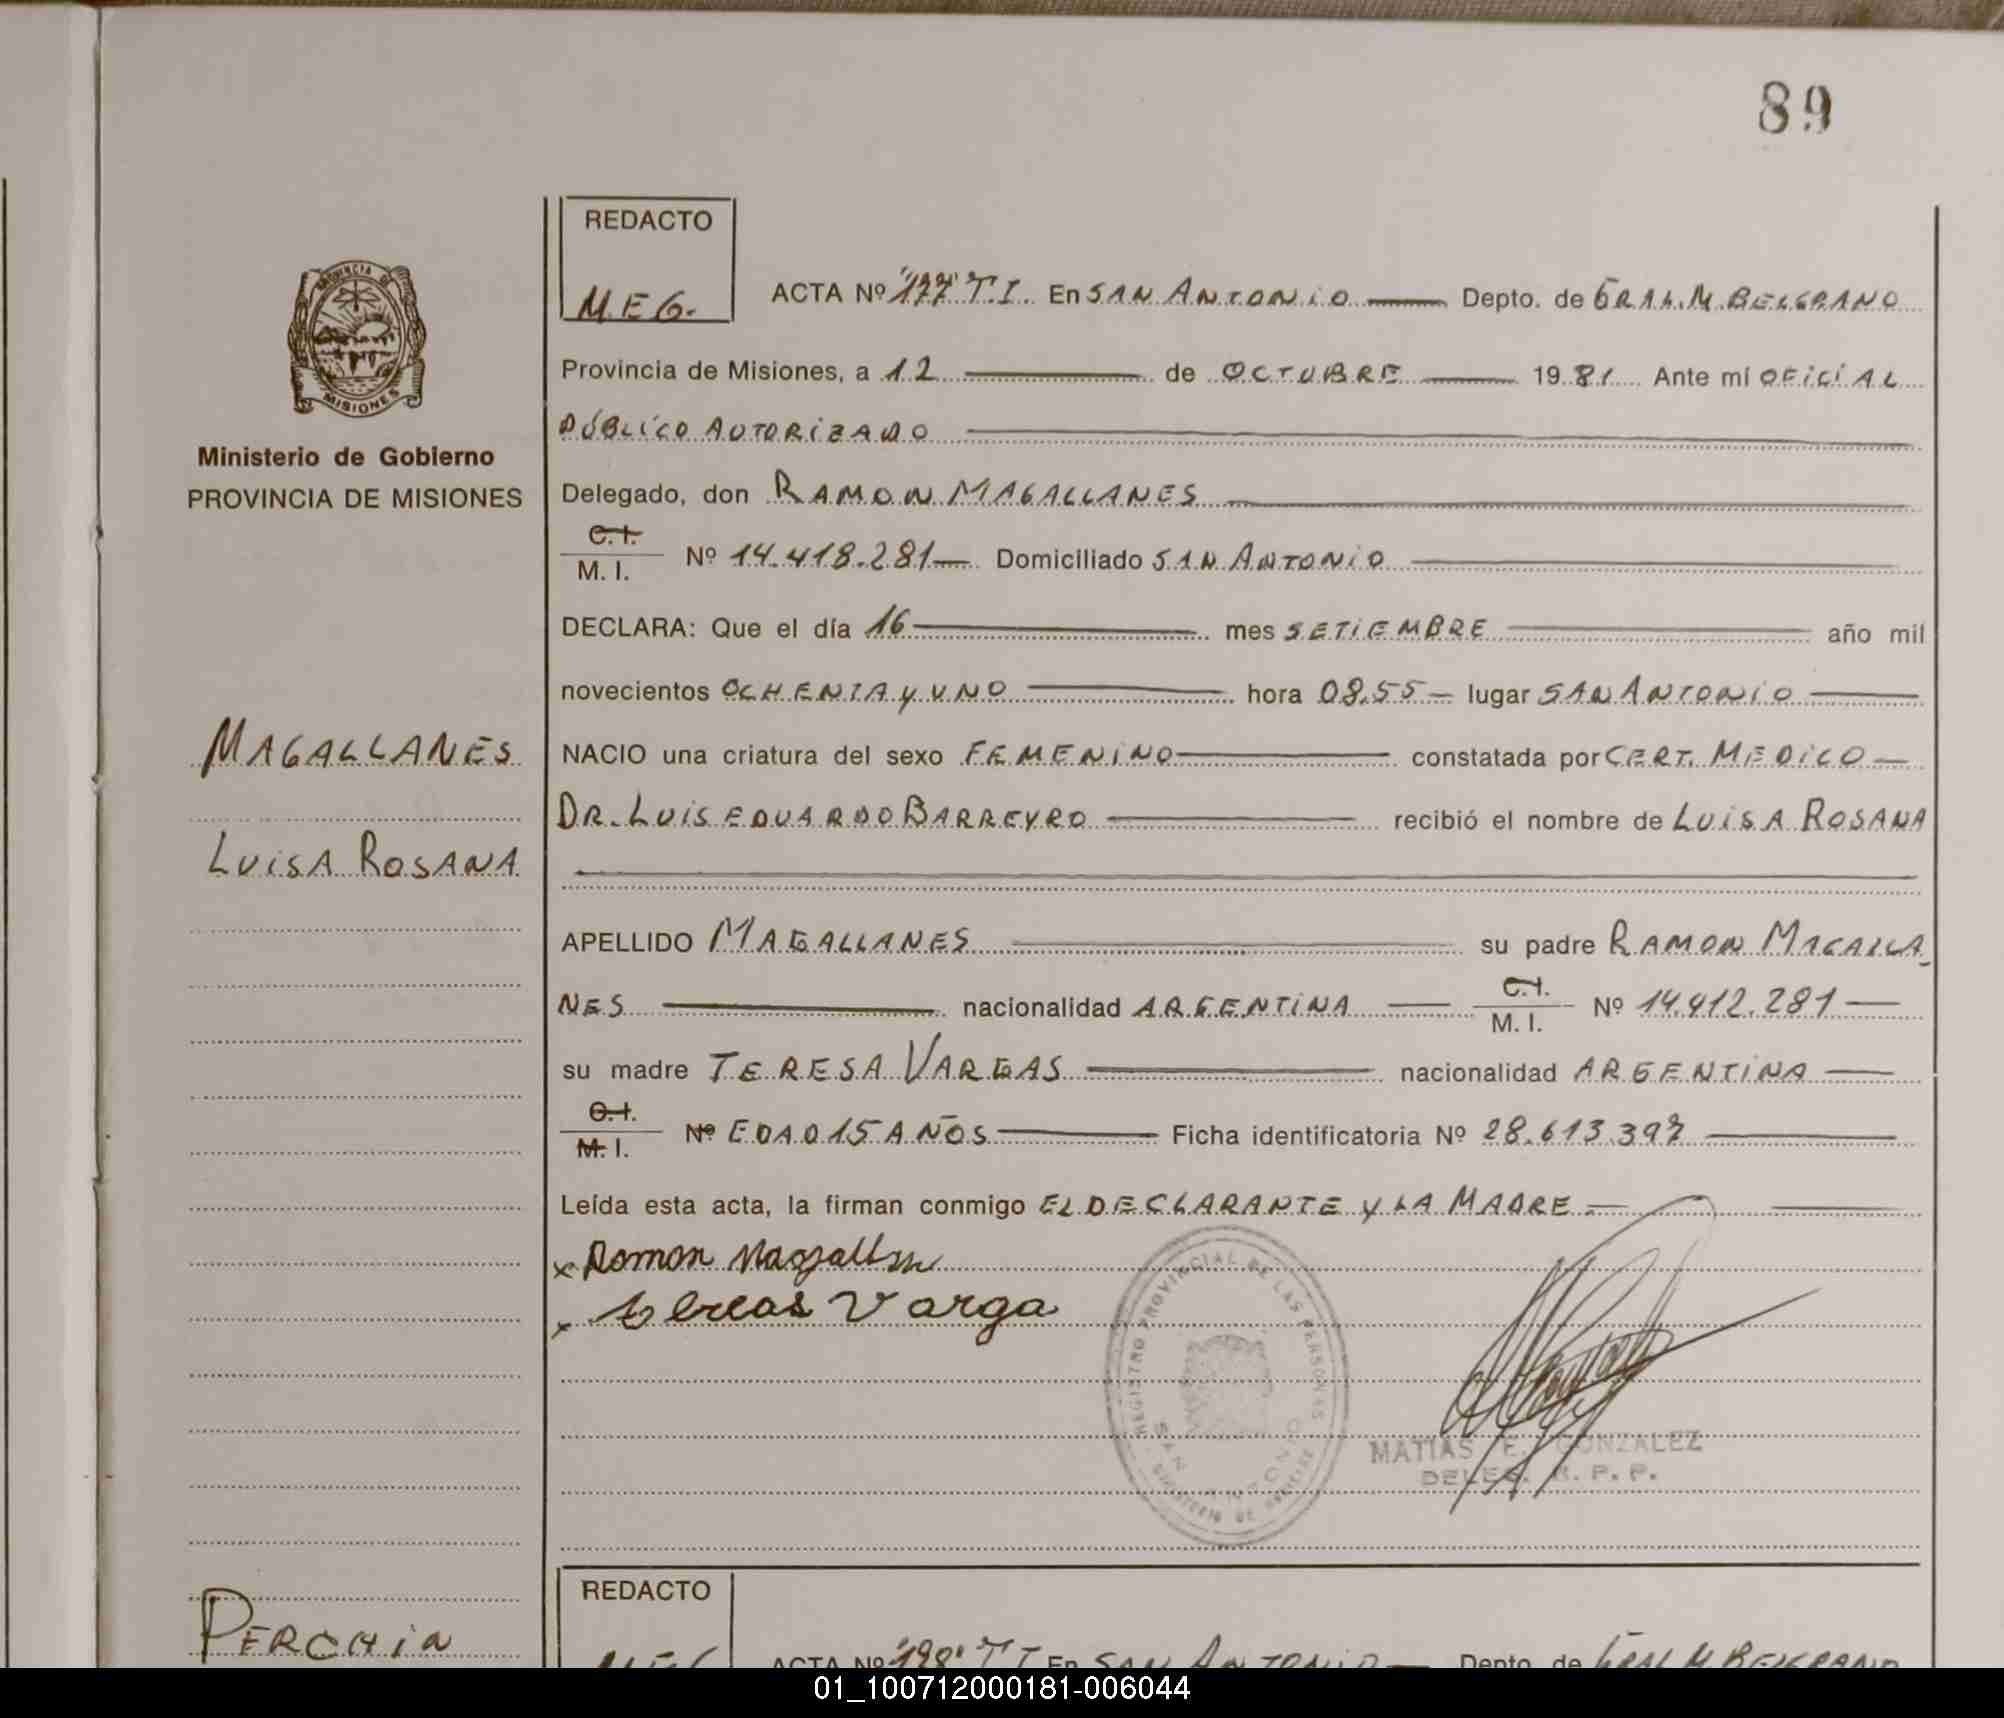 89
REDACTO
M.E.G.
ACTA Nº "177" T.I. En SAN ANTONIO Depto. de GRAL. M. BELGRANO
Provincia de Misiones, a 12 de OCTUBRE 1981 Ante mí OFICIAL
PÚBLICO AUTORIZADO
Delegado, don RAMON MAGALLANES
C. I.
M. I. Nº 14.418.281 Domiciliado SAN ANTONIO
DECLARA: Que el día 16 mes SETIEMBRE año mil
novecientos OCHENTA y UNO hora 08,55 lugar SAN ANTONIO
NACIO una criatura del sexo FEMENINO constatada por CERT. MEDICO
DR. LUIS EDUARDO BARREYRO recibió el nombre de LUISA ROSANA
APELLIDO MAGALLANES su padre RAMON MAGALLA
NES nacionalidad ARGENTINA C. I. M. I. Nº 14.412.281
su madre TERESA VARGAS nacionalidad ARGENTINA
C. I.
M. I. Nº EDAD 15 AÑOS Ficha identificatoria Nº 28.613.397
Leída esta acta, la firman conmigo EL DECLARANTE y LA MADRE
x Ramon
x Varga
REGISTRO PROVINCIAL DE LAS PERSONAS
SAN ANTONIO
MATIAS E. GONZALEZ
DELEG. R. P. P.
PROVINCIA DE
MISIONES
Ministerio de Gobierno
PROVINCIA DE MISIONES
MAGALLANES
LUISA ROSANA
PERCHIN
REDACTO
M.E.G.
ACTA Nº "198" T.I. En SAN ANTONIO Depto. de GRAL. M. BELGRANO
01_100712000181-006044